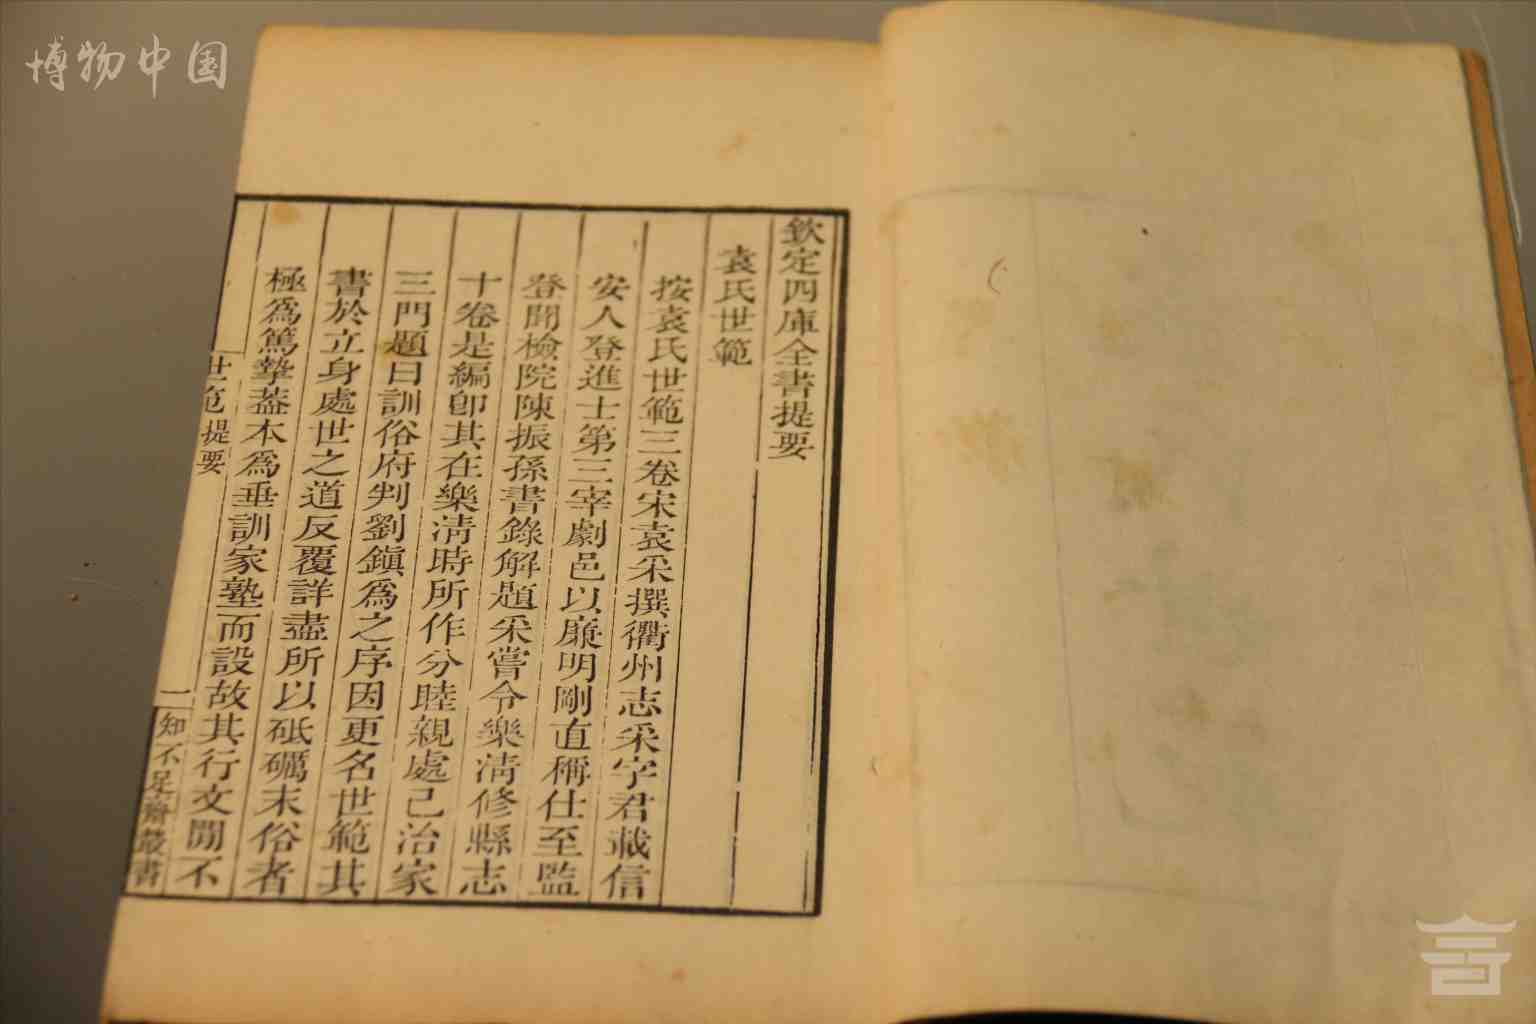 博物中国
欽定四庫全書提要
袁氏世範
按袁氏世範三卷宋袁采撰衢州志采字君載信
安人登進士第三宰劇邑以廉明剛直稱仕至監
登聞檢院陳振孫書錄解題采嘗令樂清修縣志
十卷是編卽其在樂清時所作分睦親處己治家
三門題曰訓俗府判劉鎭爲之序因更名世範其
書於立身處世之道反覆詳盡所以砥礪末俗者
極爲篤摯葢本爲垂訓家塾而設故其行文閒不
世範提要
一
知不足齋叢書